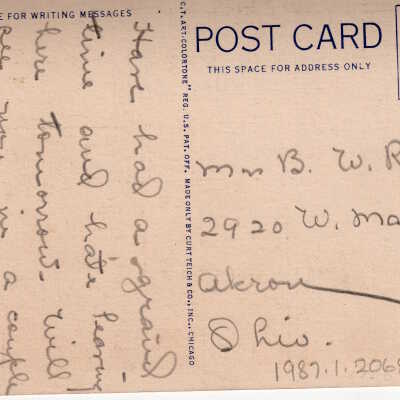 E FOR WRITING MESSAGES
Have had a grand
time and hate leaving
here tomorrow. Will
see you in a couple
C.T. ART-COLORTONE" REG. U.S. PAT. OFF. MADE ONLY BY CURT TEICH & CO., INC., CHICAGO
POST CARD
THIS SPACE FOR ADDRESS ONLY
Mrs B. W. R
2920 W. Ma
Akron
Ohio.
1987.1.206